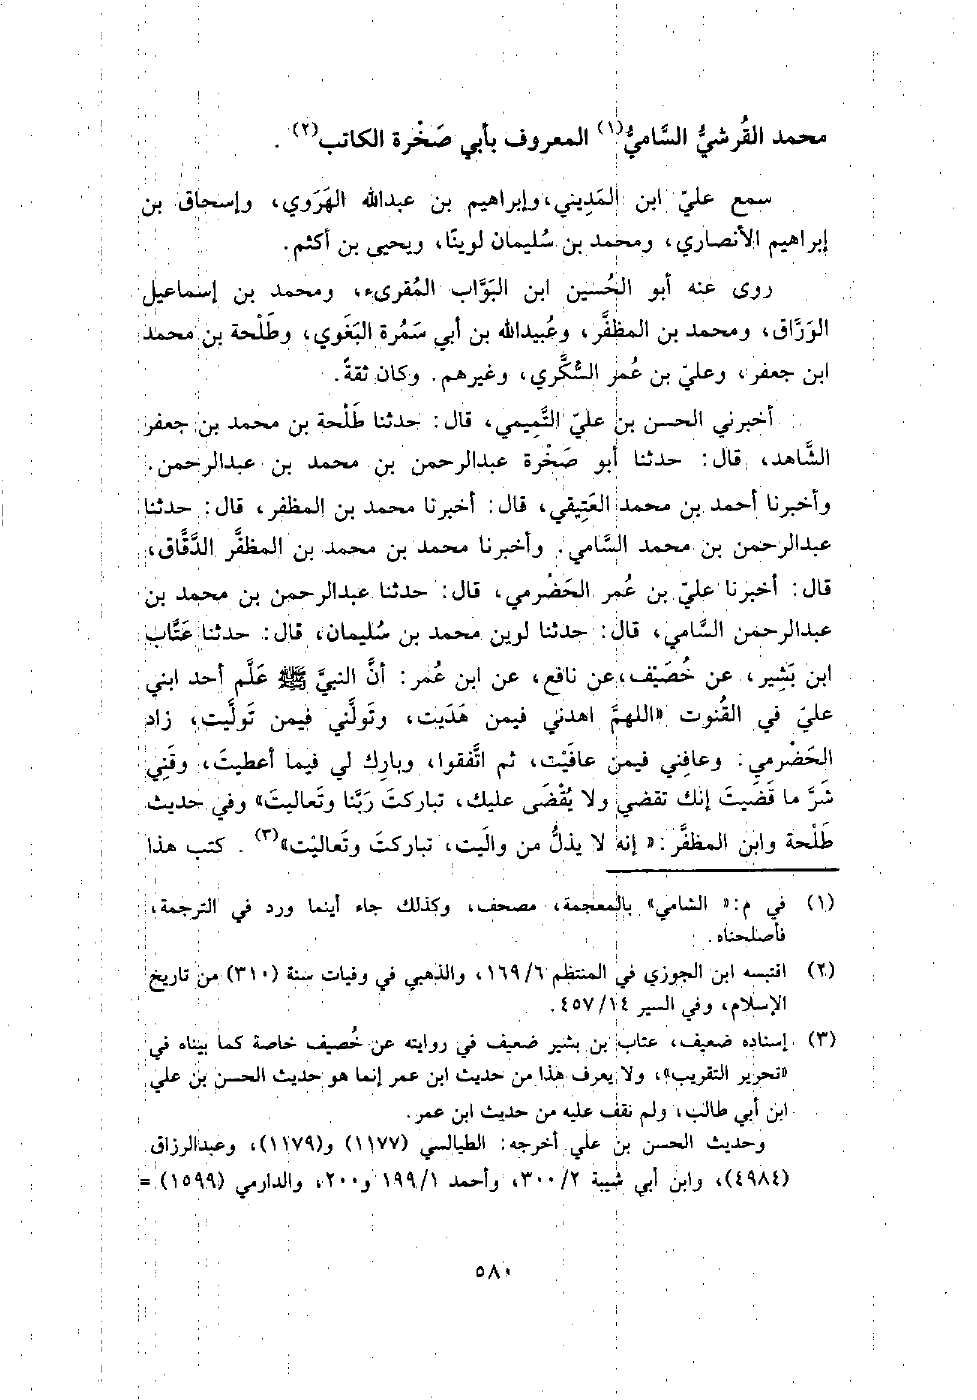 محمد القُرشيُّ السَّاميُّ(١) المعروف بأبي صَخْرة الكاتب(٢) .
سمع عليّ ابن المَدِيني، وإبراهيم بن عبدالله الهَرَوي، وإسحاق بن
إبراهيم الأنصاري، ومحمد بن سُليمان لوينًا، ويحيى بن أكثم.
روى عنه أبو الحُسين ابن البَوَّاب المُقرىء، ومحمد بن إسماعيل
الوَرَّاق، ومحمد بن المظفَّر، وعُبيدالله بن أبي سَمُرة البَغَوي، وطَلْحة بن محمد
ابن جعفر، وعليّ بن عُمر السُّكَّري، وغيرهم. وكان ثقةً.
أخبرني الحسن بن عليّ التَّمِيمي، قال: حدثنا طَلْحة بن محمد بن جعفر
الشَّاهد، قال: حدثنا أبو صَخْرة عبدالرحمن بن محمد بن عبدالرحمن.
وأخبرنا أحمد بن محمد العَتِيقي، قال: أخبرنا محمد بن المظفر، قال: حدثنا
عبدالرحمن بن محمد السَّامي. وأخبرنا محمد بن محمد بن المظفَّر الدَّقَّاق،
قال: أخبرنا عليّ بن عُمر الحَضْرمي، قال: حدثنا عبدالرحمن بن محمد بن
عبدالرحمن السَّامي، قال: حدثنا لوين محمد بن سُليمان، قال: حدثنا عَتَّاب
ابن بَشِير، عن خُصَيْف، عن نافع، عن ابن عُمر: أنَّ النبيَّ ﷺ عَلَّم أحد ابني
عليّ في القُنوت «اللهمَّ اهدني فيمن هَدَيت، وتولَّني فيمن تَولَّيت، زاد
الحَضْرمي: وعافِني فيمن عافَيْت، ثم اتَّفقوا، وبارِك لي فيما أعطيتَ، وقَنِي
شَرَّ ما قَضَيتَ إنك تقضي ولا يُقْضَى عليك، تباركتَ رَبَّنا وتَعاليتَ» وفي حديث
طَلْحة وابن المظفَّر: « إنه لا يذلُّ من والَيت، تباركتَ وتَعاليْت»(٣) . كتب هذا
(١) في م: « الشامي» بالمعجمة، مصحف، وكذلك جاء أينما ورد في الترجمة،
فأصلحناه.
(٢) اقتبسه ابن الجوزي في المنتظم ١٦٩/٦، والذهبي في وفيات سنة (٣١٠) من تاريخ
الإسلام، وفي السير ٤٥٧/١٤.
(٣) إسناده ضعيف، عتاب بن بشير ضعيف في روايته عن خُصيف خاصة كما بيناه في
«تحرير التقريب»، ولا يعرف هذا من حديث ابن عمر إنما هو حديث الحسن بن علي
ابن أبي طالب، ولم نقف عليه من حديث ابن عمر.
وحديث الحسن بن علي أخرجه: الطيالسي (١١٧٧) و(١١٧٩)، وعبدالرزاق
(٤٩٨٤)، وابن أبي شيبة ٣٠٠/٢، وأحمد ١٩٩/١ و٢٠٠، والدارمي (١٥٩٩) =
٥٨٠